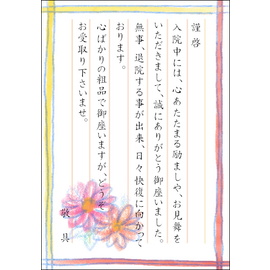 謹啓
入院中には、心あたたまる励ましや、お見舞を
いただきまして、誠にありがとう御座いました。
無事、退院する事が出来、日々快復に向かって
おります。
心ばかりの粗品で御座いますが、どうぞ
お受取り下さいませ。
敬具